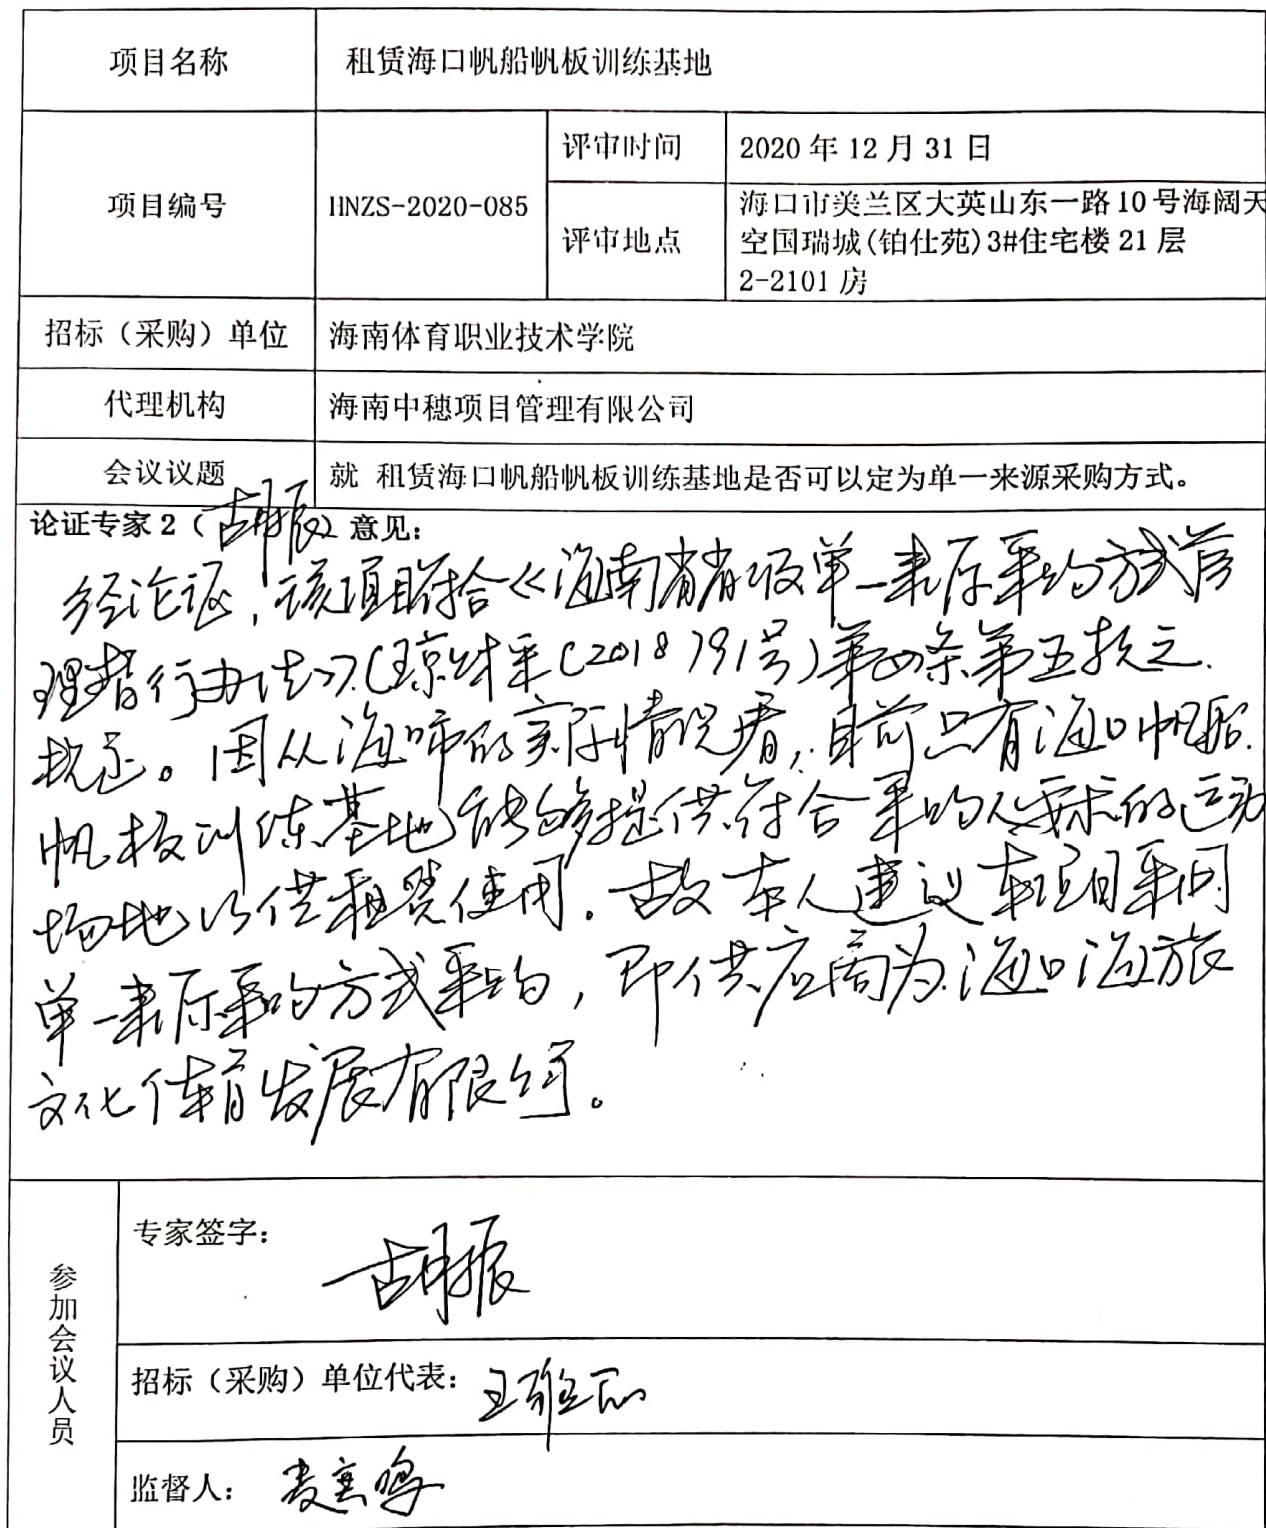 项目名称 租赁海口帆船帆板训练基地
项目编号 HNZS-2020-085 评审时间 2020年12月31日
评审地点 海口市美兰区大英山东一路10号海阔天
空国瑞城(铂仕苑)3#住宅楼21层
2-2101房
招标（采购）单位 海南体育职业技术学院
代理机构 海南中穗项目管理有限公司
会议议题 就 租赁海口帆船帆板训练基地是否可以定为单一来源采购方式。
论证专家2（胡振）意见：
经论证，该项目符合《海南省省级单一来源采购方式管
理暂行办法》（琼财采〔2018〕791号）第四条第五款之
规定。因从海口市的实际情况看，目前只有海口帆船
帆板训练基地能够提供符合采购人要求的运动
场地以供租赁使用。故本人建议本项目采用
单一来源采购方式采购，即供应商为海口海旅
文化体育发展有限公司。
参加会议人员
专家签字： 胡振
招标（采购）单位代表： 王
监督人：